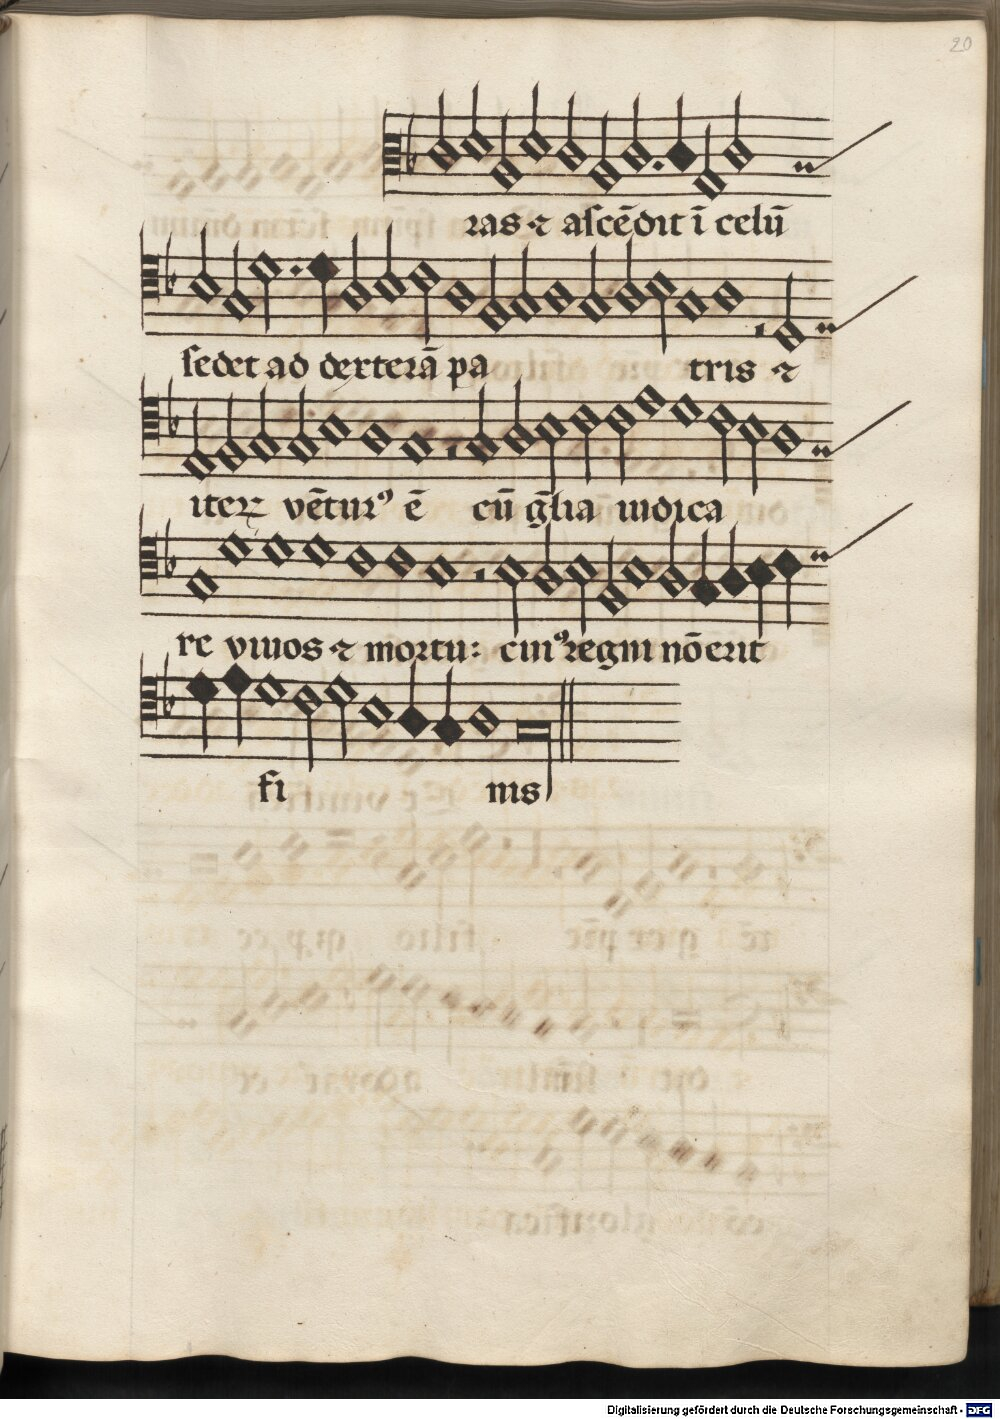 20
ras ⁊ ascēdit ī celū
sedet ad dexterā pa tris ⁊
iterꝝ vētur⁹ ē cū gl̄ia iudica
re viuos ⁊ mortu: cui⁹ regni nō erit
fi nis
Digitalisierung gefördert durch die Deutsche Forschungsgemeinschaft - DFG